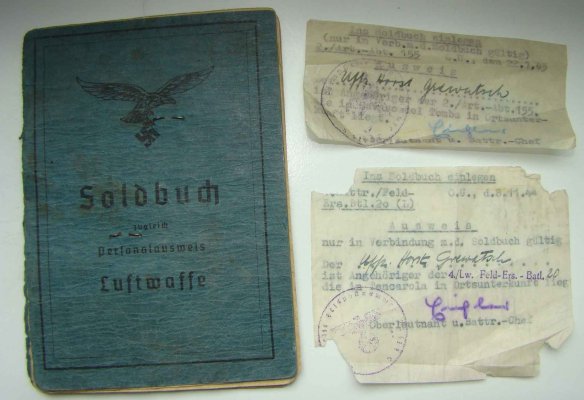 Soldbuch
zugleich
Personalausweis
Luftwaffe
Ins Soldbuch einlegen
(nur in Verb.m.d.Soldbuch gültig)
2./Art.-Abt. 155 den 22.1.45
Ausweis
Uffz. Horst Grewatsch
ist Angehöriger der 2./Art.-Abt.155.
die in Tombe in Ortsunter-
liegt.
Oberleutnant u. Battr.-Chef
Ins Soldbuch einlegen
Battr./Feld- O.U., d. 8.11.44
Ers.Btl.20 (L)
Ausweis
nur in Verbindung m.d. Soldbuch gültig
Der Uffz. Horst Grewatsch
ist Angehöriger der 4./Lw. Feld-Ers.-Batl. 20
die in Tencarola in Ortsunterkunft liegt
Oberleutnant u. Battr.-Chef